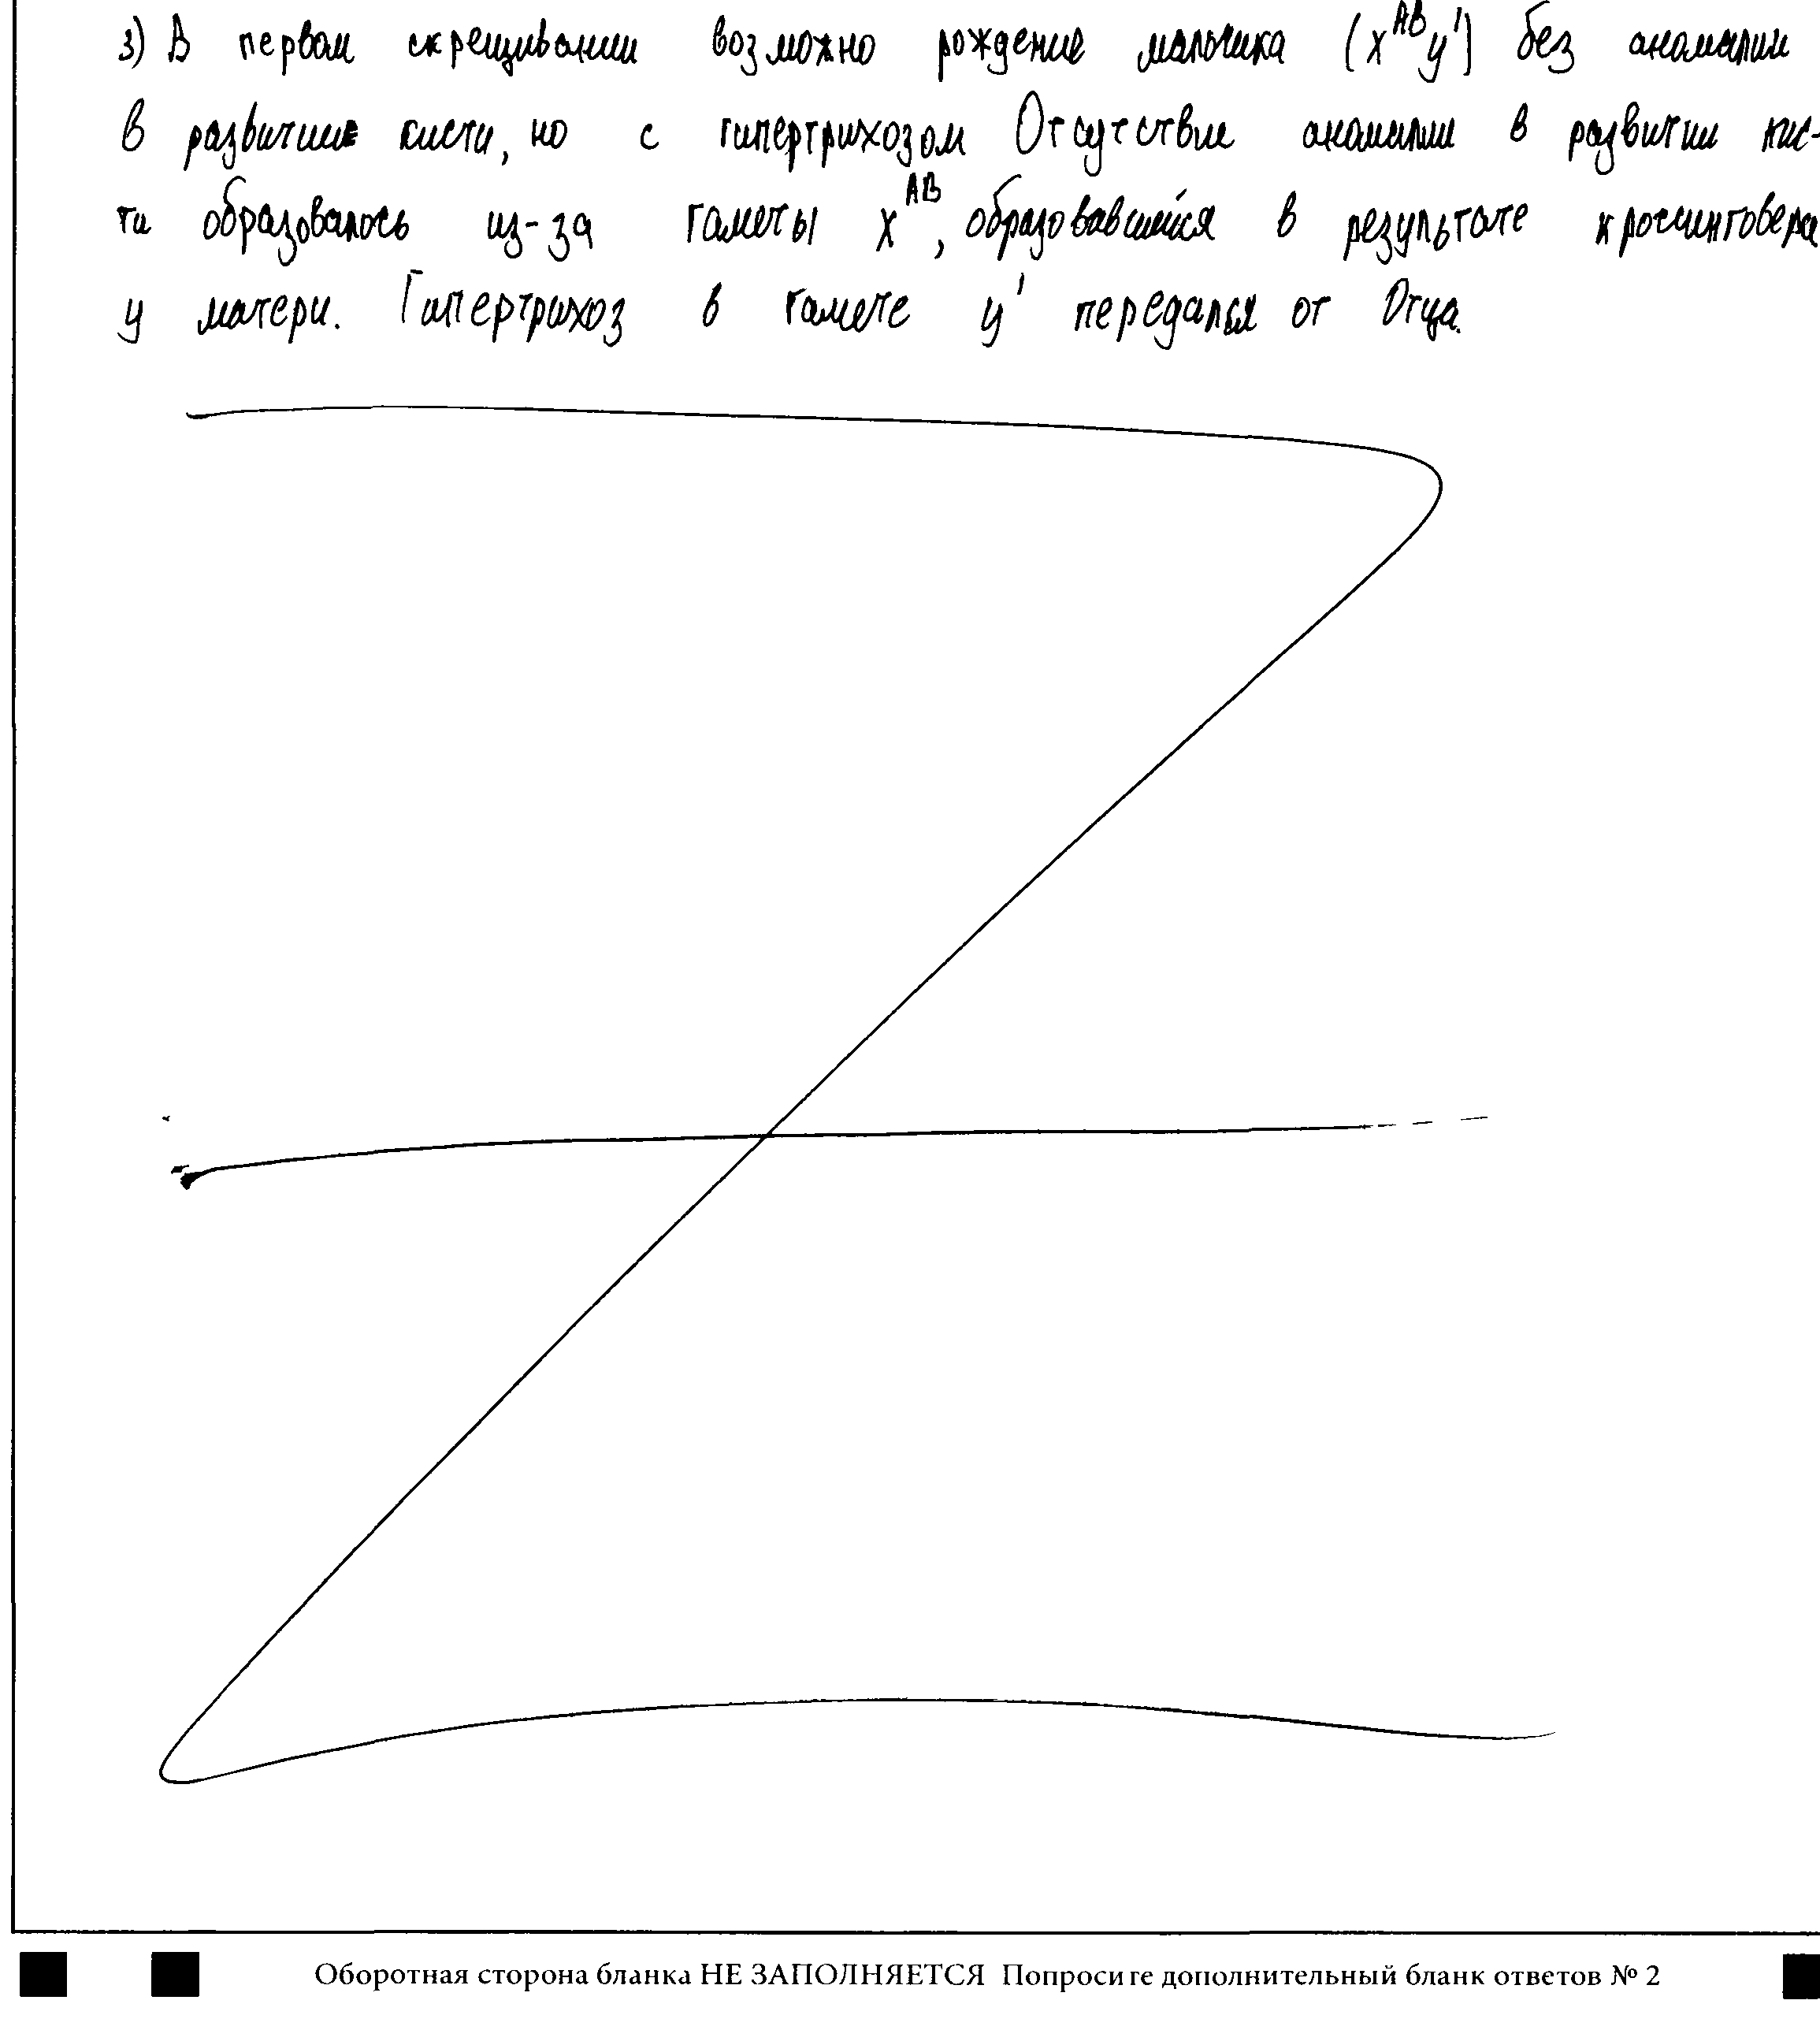 3) В первом скрещивании возможно рождение мальчика (x^AB y') без аномалии
в развитие кисти, но с гипертрихозом Отсутствие аномалии в развитии кис-
ти образовалось из-за гаметы x^AB, образовавшейся в результате кроссинговера
у матери. Гипертрихоз в гамете y' передался от Отца.
Оборотная сторона бланка НЕ ЗАПОЛНЯЕТСЯ Попросите дополнительный бланк ответов № 2